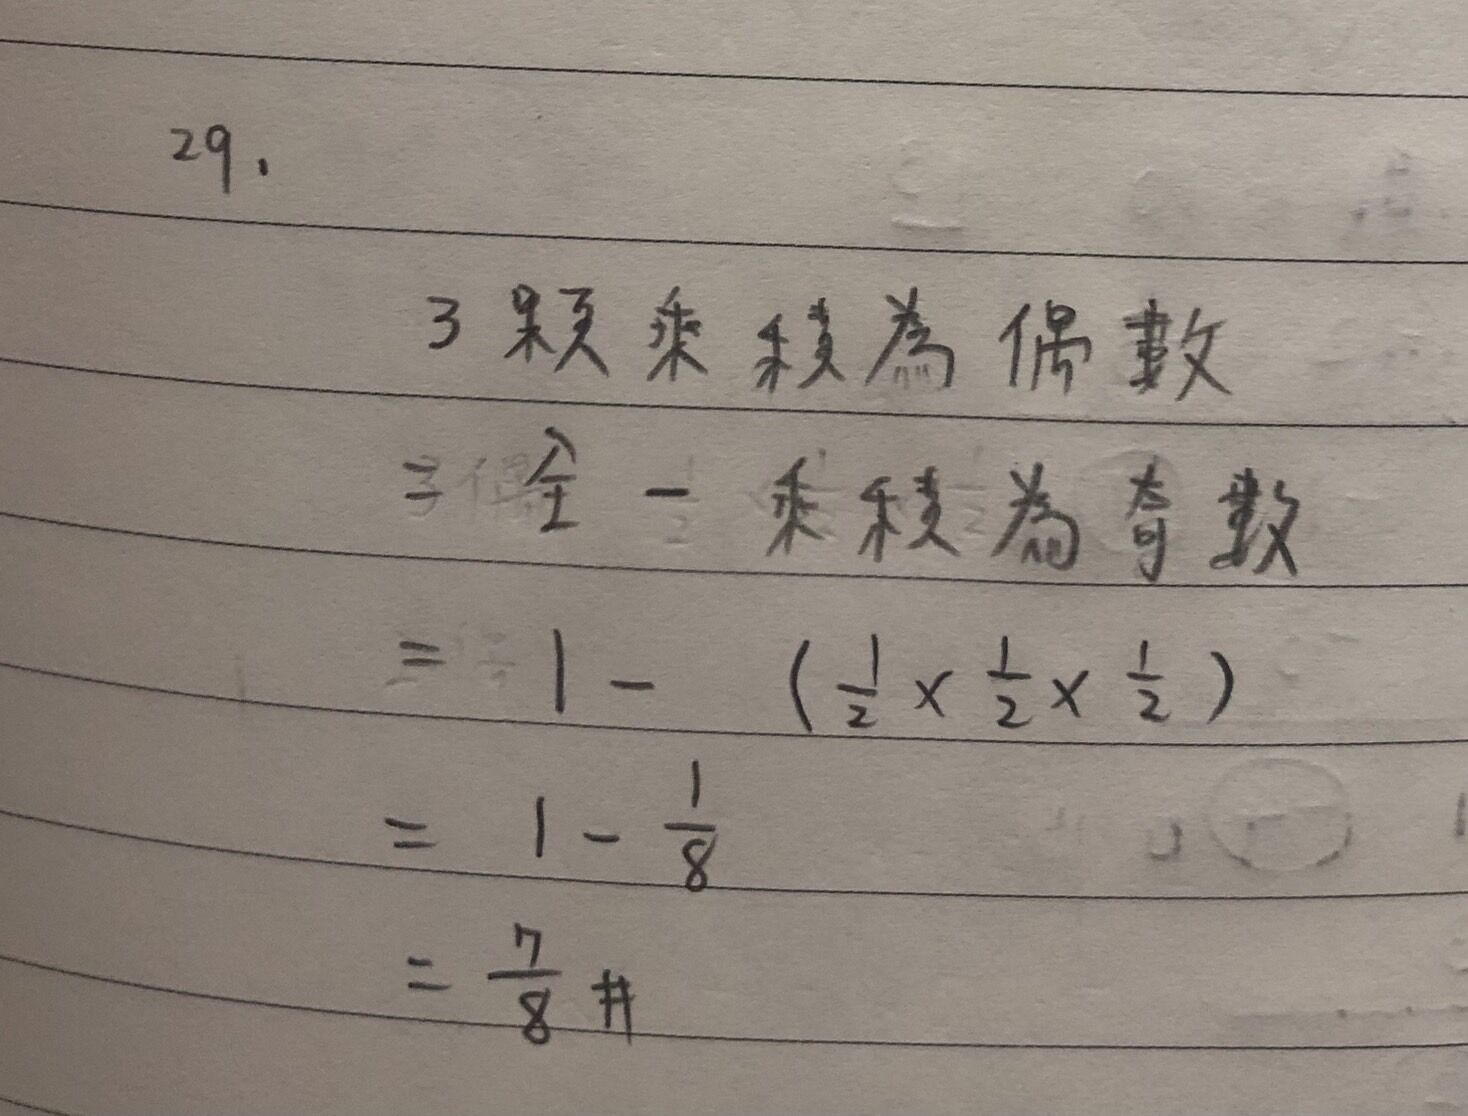 29.
3顆乘積為偶數
= 全 - 乘積為奇數
= 1 - (1/2 × 1/2 × 1/2)
= 1 - 1/8
= 7/8 #